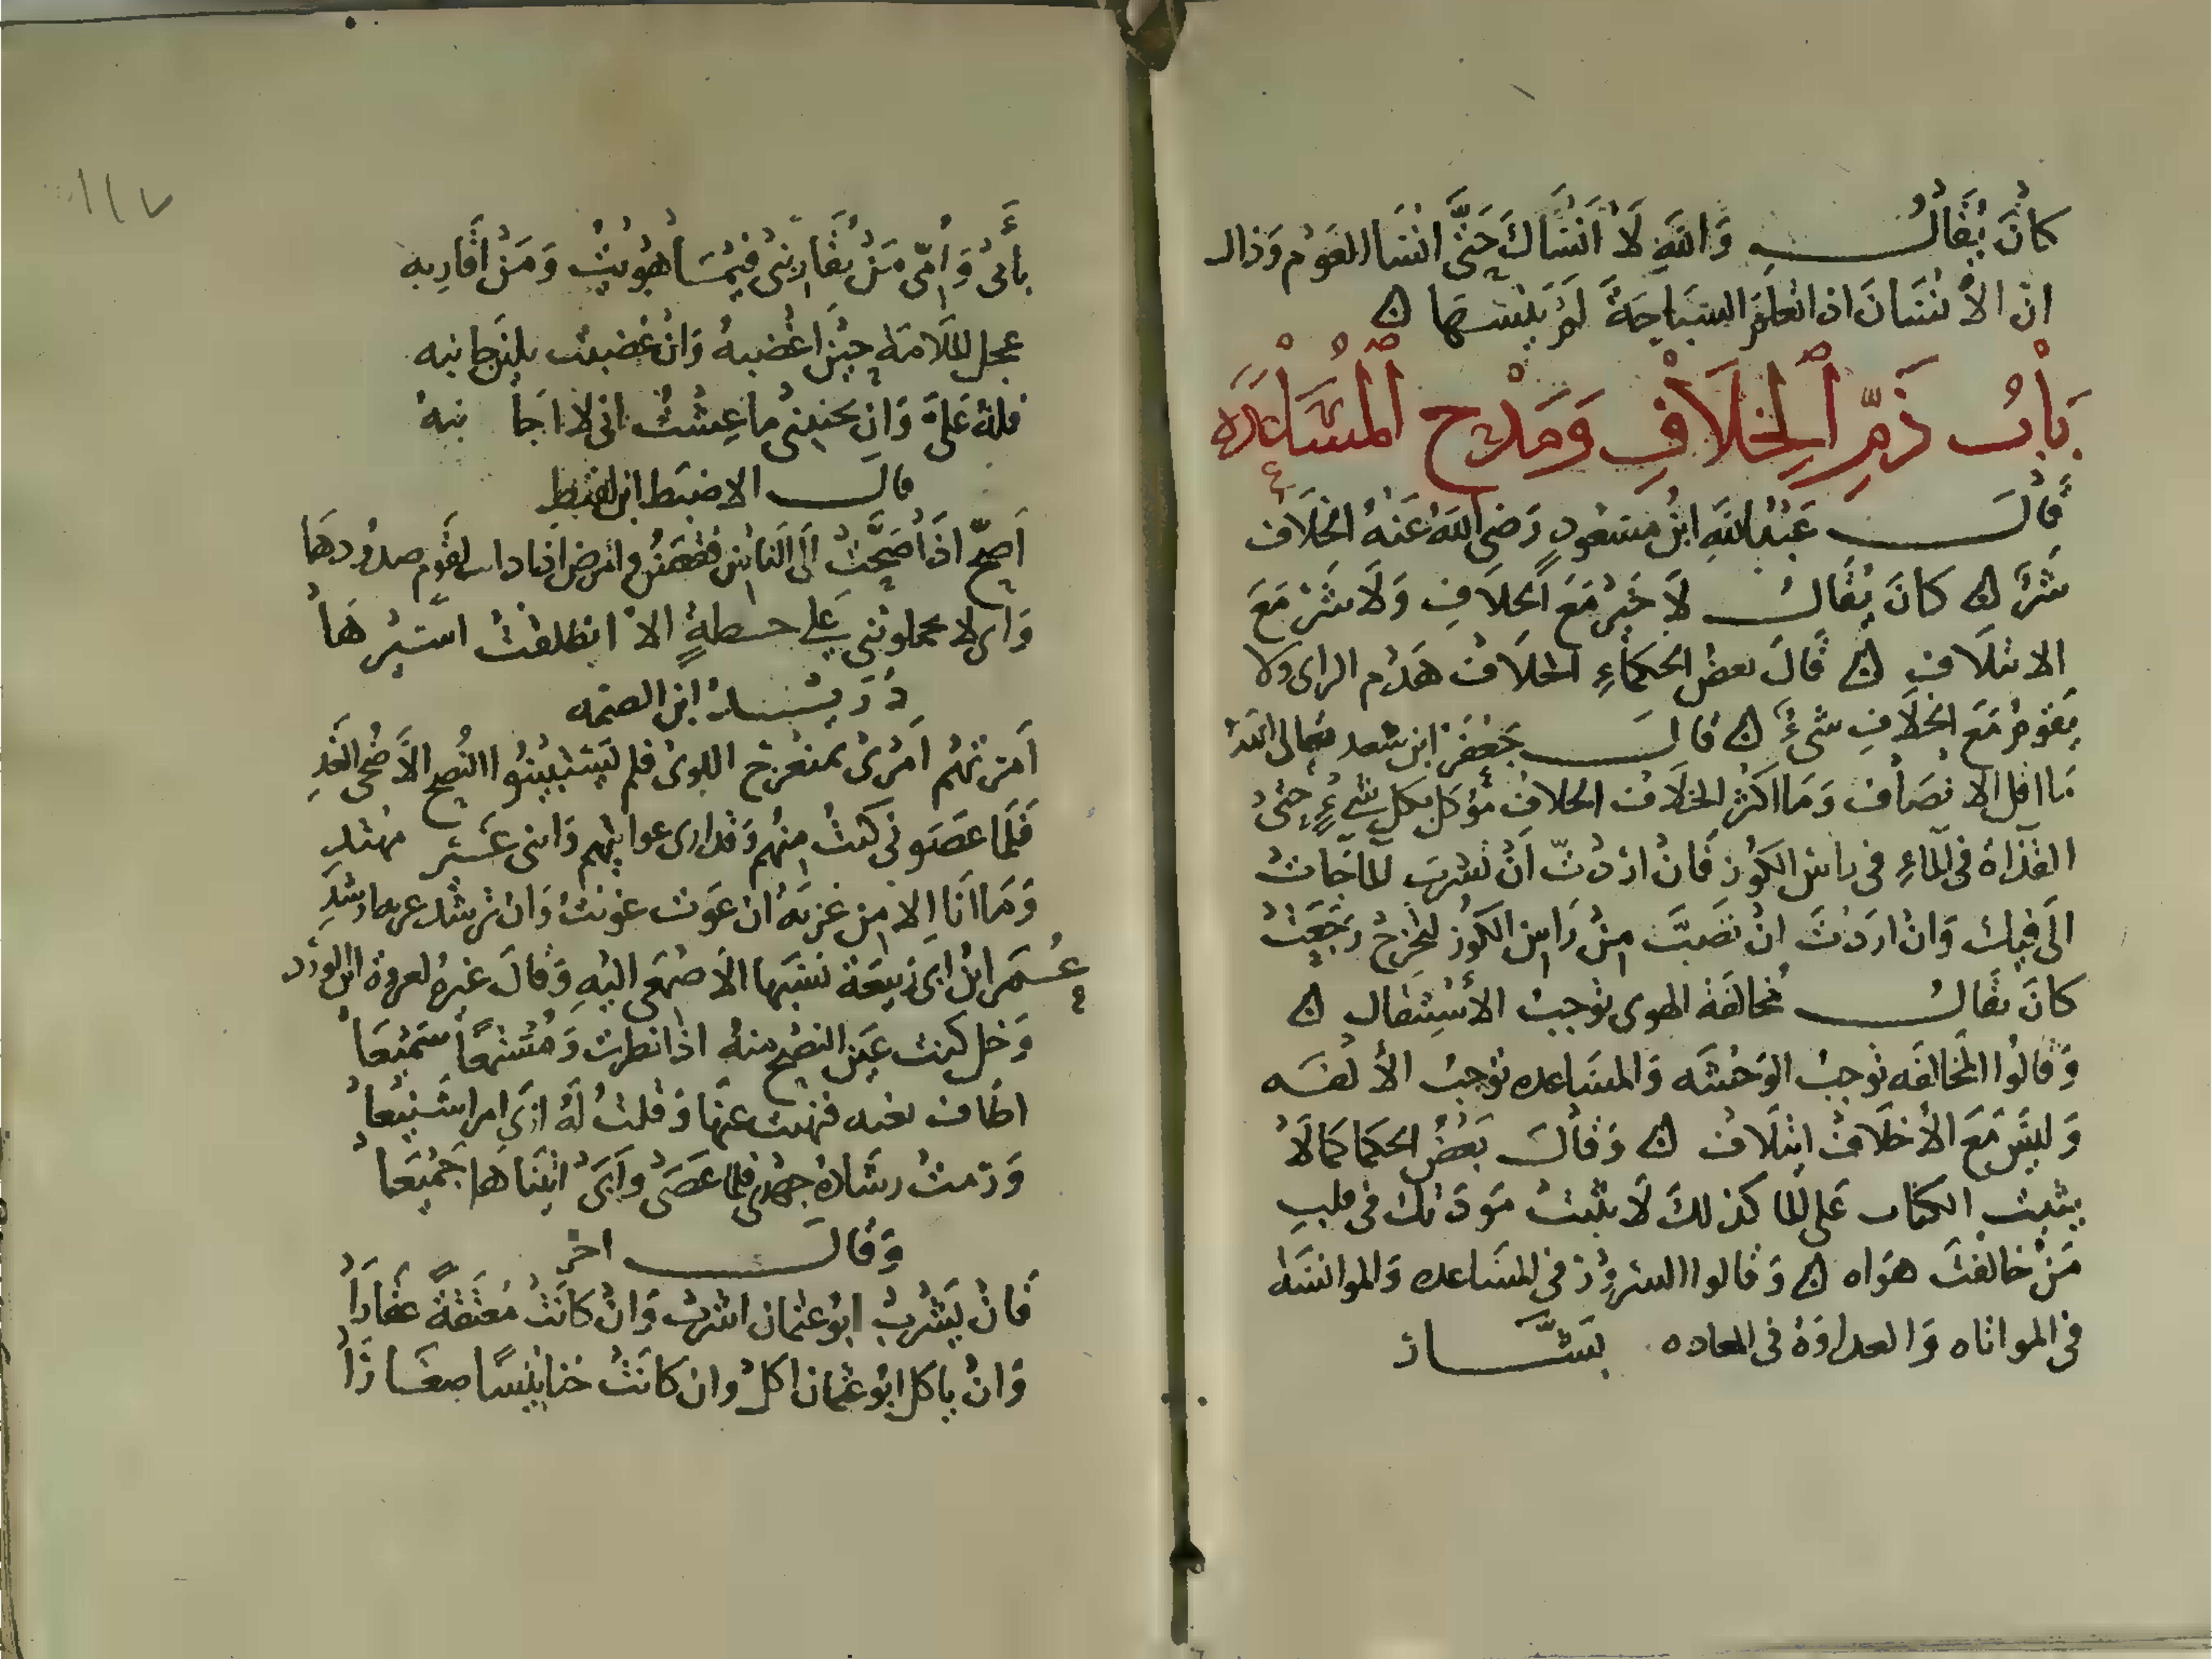 كَانَ يُقَالُ وَاللَّهِ لَا أَنْسَاكَ حَتَّى انْسَا العَوْم وَذَالـ
انّ الأنْسَانَ اذا تعلّمَ السّبَاحَةَ لَمْ يَنْسَهَا ۞
بَابُ ذَمِّ ٱلْخِلَافِ وَمَدْحِ ٱلْمُسَاعَدَه
قَالَ عَبْدُ اللَّهِ ابْنُ مَسْعُودٍ رَضِيَ اللَّهُ عَنْهُ الخِلَاف
شَرٌّ ۞ كَانَ يُقَالُ لَا خَيْرَ مَعَ الخِلَافِ وَلَا شَرَّ مَعَ
الائتلَافِ ۞ قَالَ بعضُ الحكمَاءِ الخلَافُ هَدْم الراى ولا
يَقُومُ مَعَ الخِلَافِ شَىْءٌ ۞ قَالَ جَعْفَرُ ابن سعد
مَا اقل الانصَافَ وَمَا اكثرَ الخِلَافَ الخلافُ مُوَكّل بكل شىءٍ حَتى
القذَاة فى المَاءِ فى راس الكُوزِ فَانْ ارَدْتَ أَنْ تَشْرَبَ المَا جَاتْ
الَى فِيكَ وَانْ ارَدْتَ انْ تَصُبَّ مِنْ رَاسِ الكُوزِ لتخرُجَ رَجَعَتْ
كَانَ يُقَالُ مُخَالَفَة الهوى تُوجبُ الأسْتِثقَال ۞
وَقَالُوا المُخَالَفَه تُوجبُ الوَحْشَه وَالمسَاعده تُوجبُ الألفَه
وَليسَ مَعَ الأختلَافِ ايتلَافُ ۞ وَقَالَ بَعْضُ الحكَمَا كَمَا لَا
يثبتُ الكتَاب عَلى المَا كذلكَ لَا يثبُتُ مَوَدّتك فى قلبِ
مَنْ خالفتَ هوَاه ۞ وَقالوا السرُورُ فى المسَاعده وَالموانسَة
فى المواتاه وَالعداوَة فى المعاده بَشَّار
١١٧
بِأَبِى وَأُمّى مَنْ يُقَارِبُنى فِيمَا هَوِيتُ وَمَنْ أُقَارِبه
عجل الملَامَة حِينَ اغْضبهُ وَانْ غضبتُ يلينُ جانبه
فلهُ عَلَىّ وَان تجنبنى ما عِشْتُ انى لا اجَا نبهُ
قال الاضبَط ابن
أَصِحّ اذَا صَحَّتْ
وَاى لا تحملونى على خطةٍ الا انطلقتُ اسَيرهَا
دُرَيْد ابن الصّمه
أَمَرتُهُم أَمْرِى بمُنْعَرَج اللِوى فلم يَسْتَبِينُوا النُصح الَّا ضُحَى الغَدِ
فَلَمّا عَصَونى كنتُ مِنهُم وَقد ارى غوايتهم وَاننى غَير مُهتدِ
وَمَا انَا الا من غزيّة ان غوَت غوَيتُ وَان ترشد غزيه ارشدِ
عُمَر ابنُ ابى رَبِيعَة نسَبَها الاصْمَعى اليْهِ وَقَالَ غيرهُ لعروة ابن الوَرْد
وَخل كنت عَينَ النصْح منهُ اذا نظرت وَمُسْتَمِعاً سَمِيعَا
اطَاف بغيه فنهيت عنهَا وَقلتُ لَهُ ارَى امرا شَنِيعَا
وَرُمتُ رشَادهُ جهدى فلما عَصَى وَأَبَى اتينَاهَا جَمِيعَا
وَقَالَ اخر
فَان يَشْرَبْ ابُو عثمان اشرَبْ وَانْ كانَتْ مُعَتَّقةً عُقَارَا
وَانْ ياكل ابُو عثمان اكلْ وان كانَتْ خنانِيسًا صِغَارَا